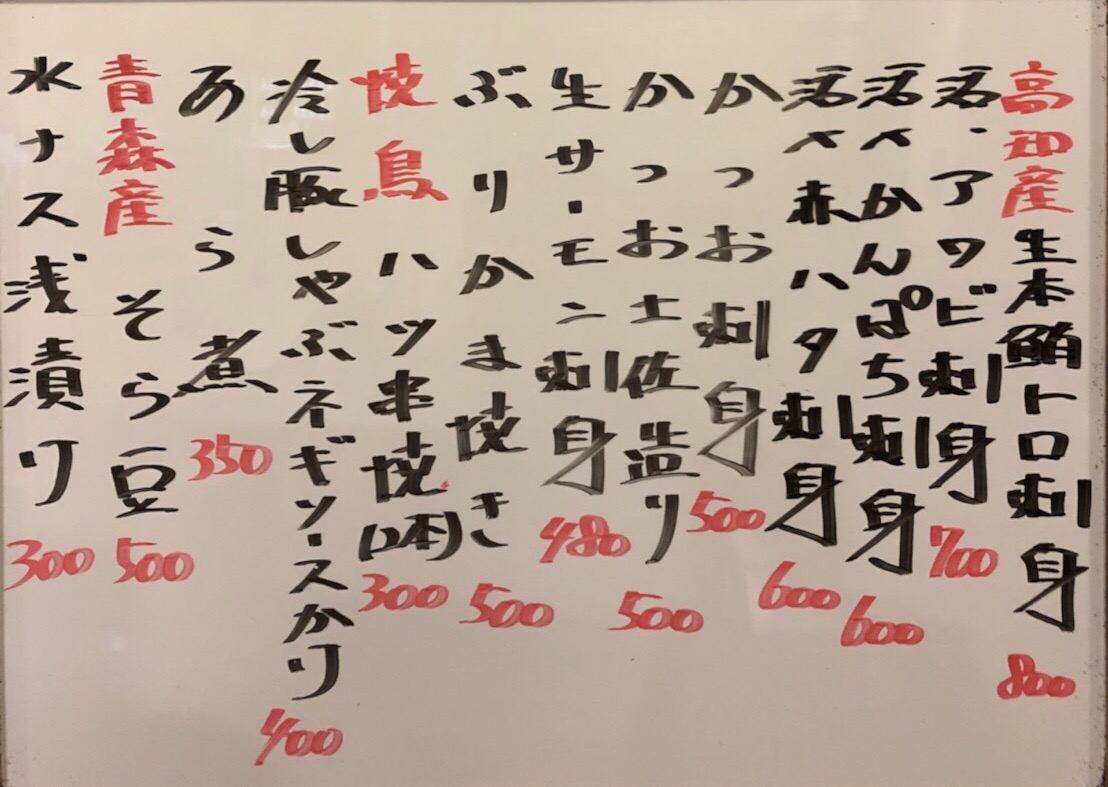 高知産生本鮪トロ刺身 800
活・アワビ刺身 700
活〆かんぱち刺身 600
活〆赤ハタ刺身 600
かつお刺身 500
かつお土佐造り 500
生サーモン刺身 480
ぶりかま焼き 500
焼鳥 ハツ串焼(2本) 300
冷し豚しゃぶネギソースかけ 400
あら煮 350
青森産 そら豆 500
水ナス浅漬け 300